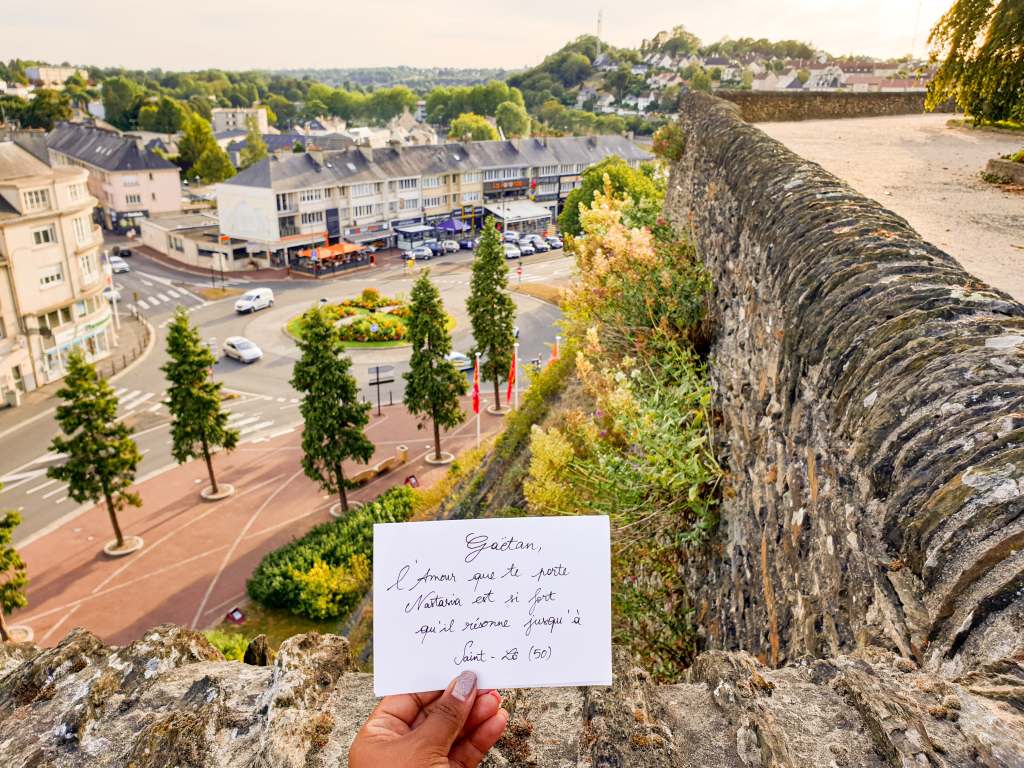 Gaëtan,
l'Amour que te porte
Nastasia est si fort
qu'il résonne jusqu'à
Saint-Lô (50)